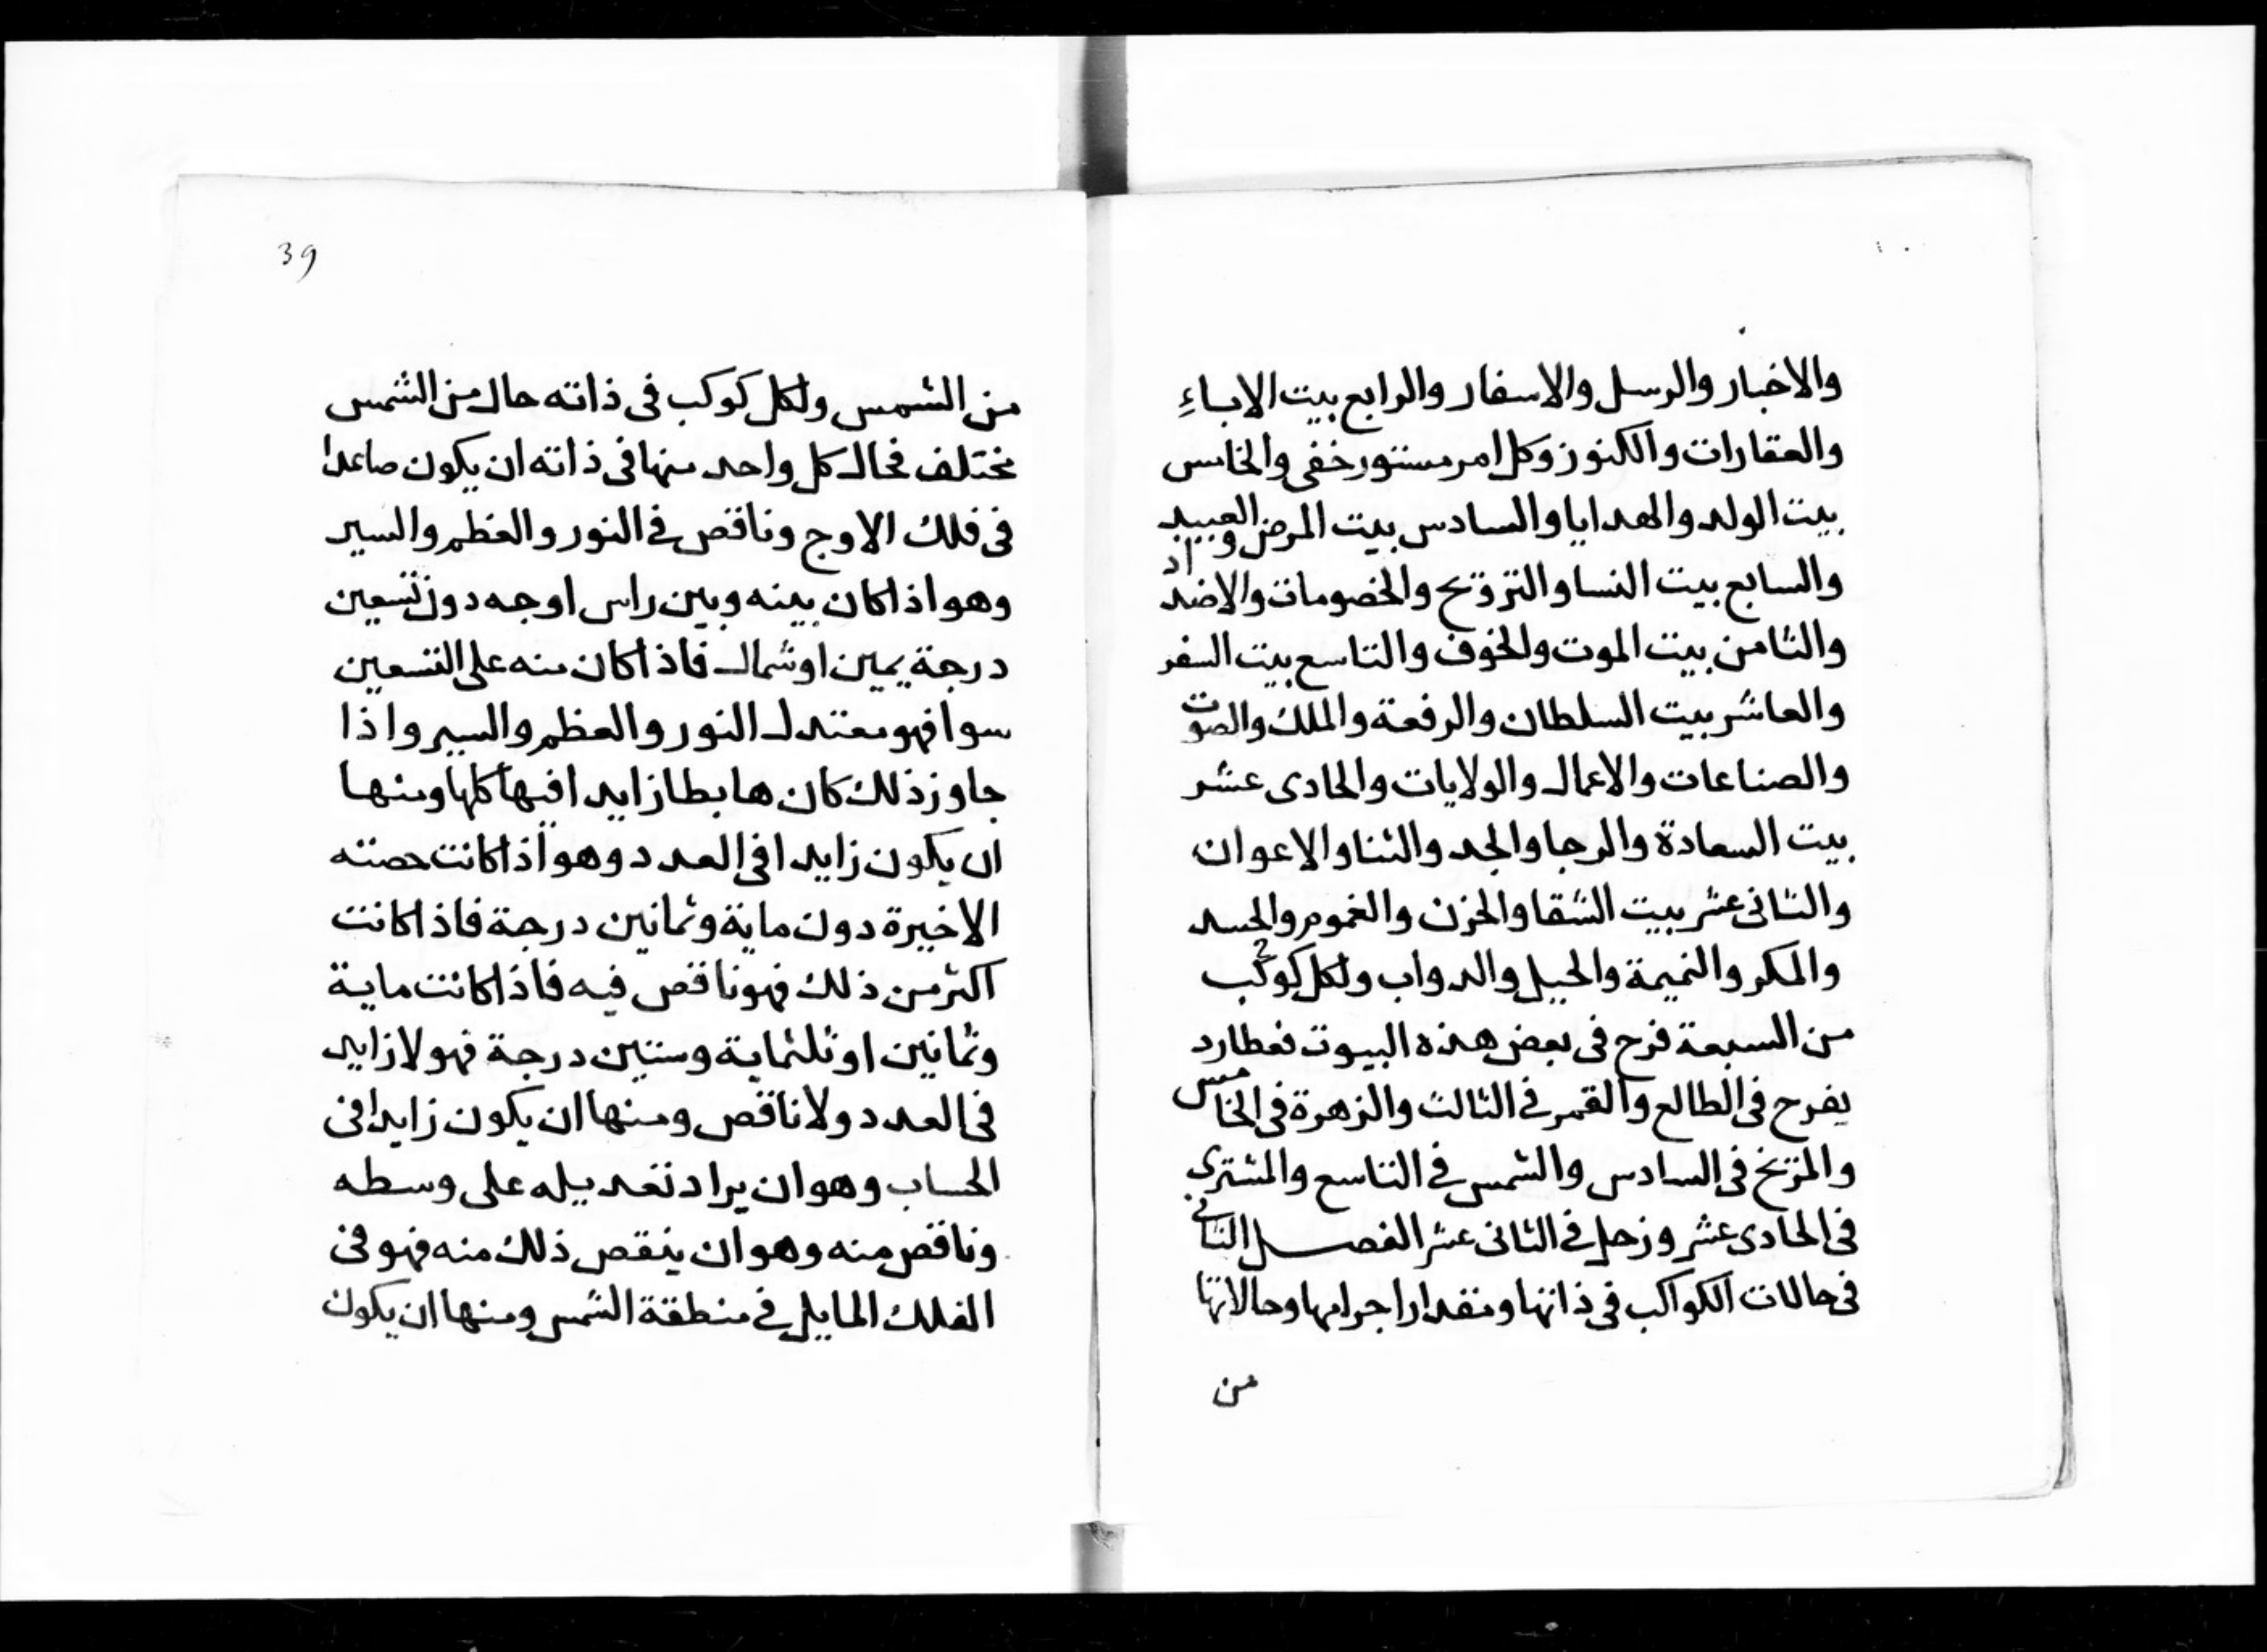 والاخبار والرسل والاسفار والرابع بيت الاباءِ
والعقارات والكنوز وكل امر مستور خفي والخامس
بيت الولد والهدايا والسادس بيت المرض والعبيد
والسابع بيت النسا والتزويج والخصومات والاضداد
والثامن بيت الموت والخوف والتاسع بيت السفر
والعاشر بيت السلطان والرفعة والملك والصوت
والصناعات والاعمال والولايات والحادى عشر
بيت السعادة والرجا والجد والثنا والاعوان
والثانى عشر بيت الشقا والحزن والغموم والحسد
والمكر والنميمة والحيل والدواب ولكل كوكب
من السبعة فرح فى بعض هذه البيوت فعطارد
يفرح فى الطالع والقمر في الثالث والزهرة فى الخامس
والمريخ فى السادس والشمس في التاسع والمشترى
فى الحادى عشر وزحل في الثانى عشر الفصل الثانى
فى حالات الكواكب فى ذاتها ومقدار اجرامها وحالاتها
من
39
من الشمس ولكل كوكب فى ذاته حال من الشمس
مختلف فحال كل واحد منها فى ذاته ان يكون صاعدا
فى فلك الاوج وناقص في النور والعظم والسير
وهو اذا كان بينه وبين راس اوجه دون تسعين
درجة يمين او شمال فاذا كان منه على التسعين
سوا فهو معتدل النور والعظم والسير واذا
جاوز ذلك كان هابطا زايدا فيها كلها ومنها
ان يكون زايدا فى العدد وهو اذا كانت حصته
الاخيرة دون ماية وثمانين درجة فاذا كانت
اكثر من ذلك فهو ناقص فيه فاذا كانت ماية
وثمانين او ثلثماية وستين درجة فهو لا زايد
فى العدد ولا ناقص ومنها ان يكون زايدا فى
الحساب وهو ان يراد تعديله على وسطه
وناقص منه وهو ان ينقص ذلك منه فهو فى
الفلك المايل في منطقة الشمس ومنها ان يكون